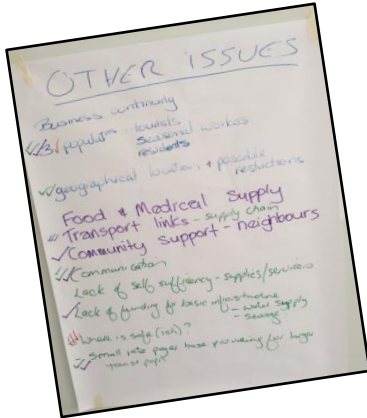 OTHER ISSUES
Business continuity
3 populatns tourists
seasonal workers
residents
geographical location + possible
restrictions
Food & Medical Supply
Transport links - supply chain
Community Support - neighbours
Communication
Lack of self sufficiency - supplies/services
Lack of funding for basic infrastructure
- water supply
- sewage
Where is safe (ish)?
Small rate payer base providing for larger